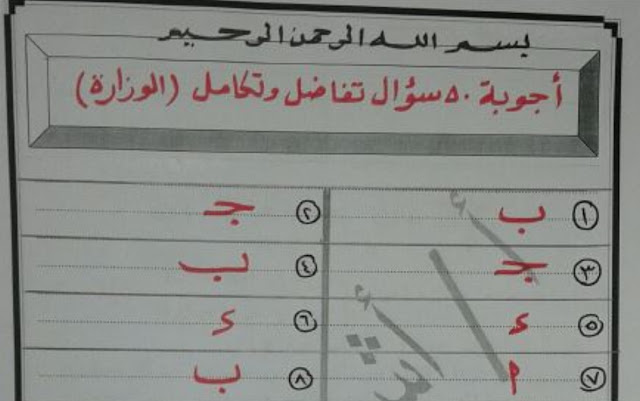 بسم الله الرحمن الرحيم
أجوبة ٥٠ سؤال تفاضل وتكامل (الوزارة)
١ ب ٢ ج
٣ ج ٤ ب
٥ ء ٦ ء
٧ م ٨ ب